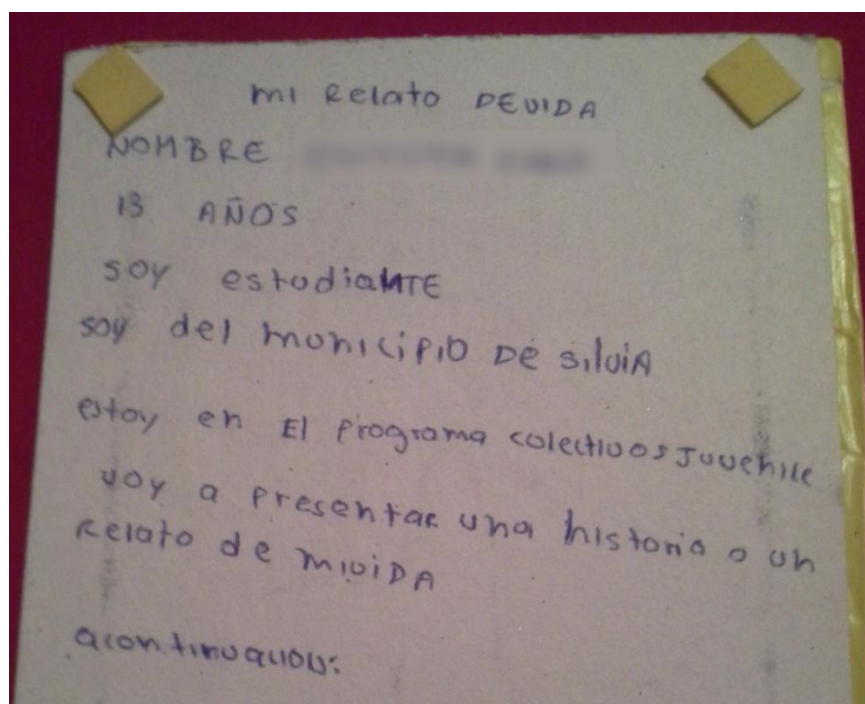 mi Relato DEVIDA
NOMBRE
13 AÑOS
soy estudiaNTE
soy del municipio DE SilviA
estoy en El programa colectivos Juvenile
voy a presentar una historia o un
Relato de miviDA
acontinuacion: